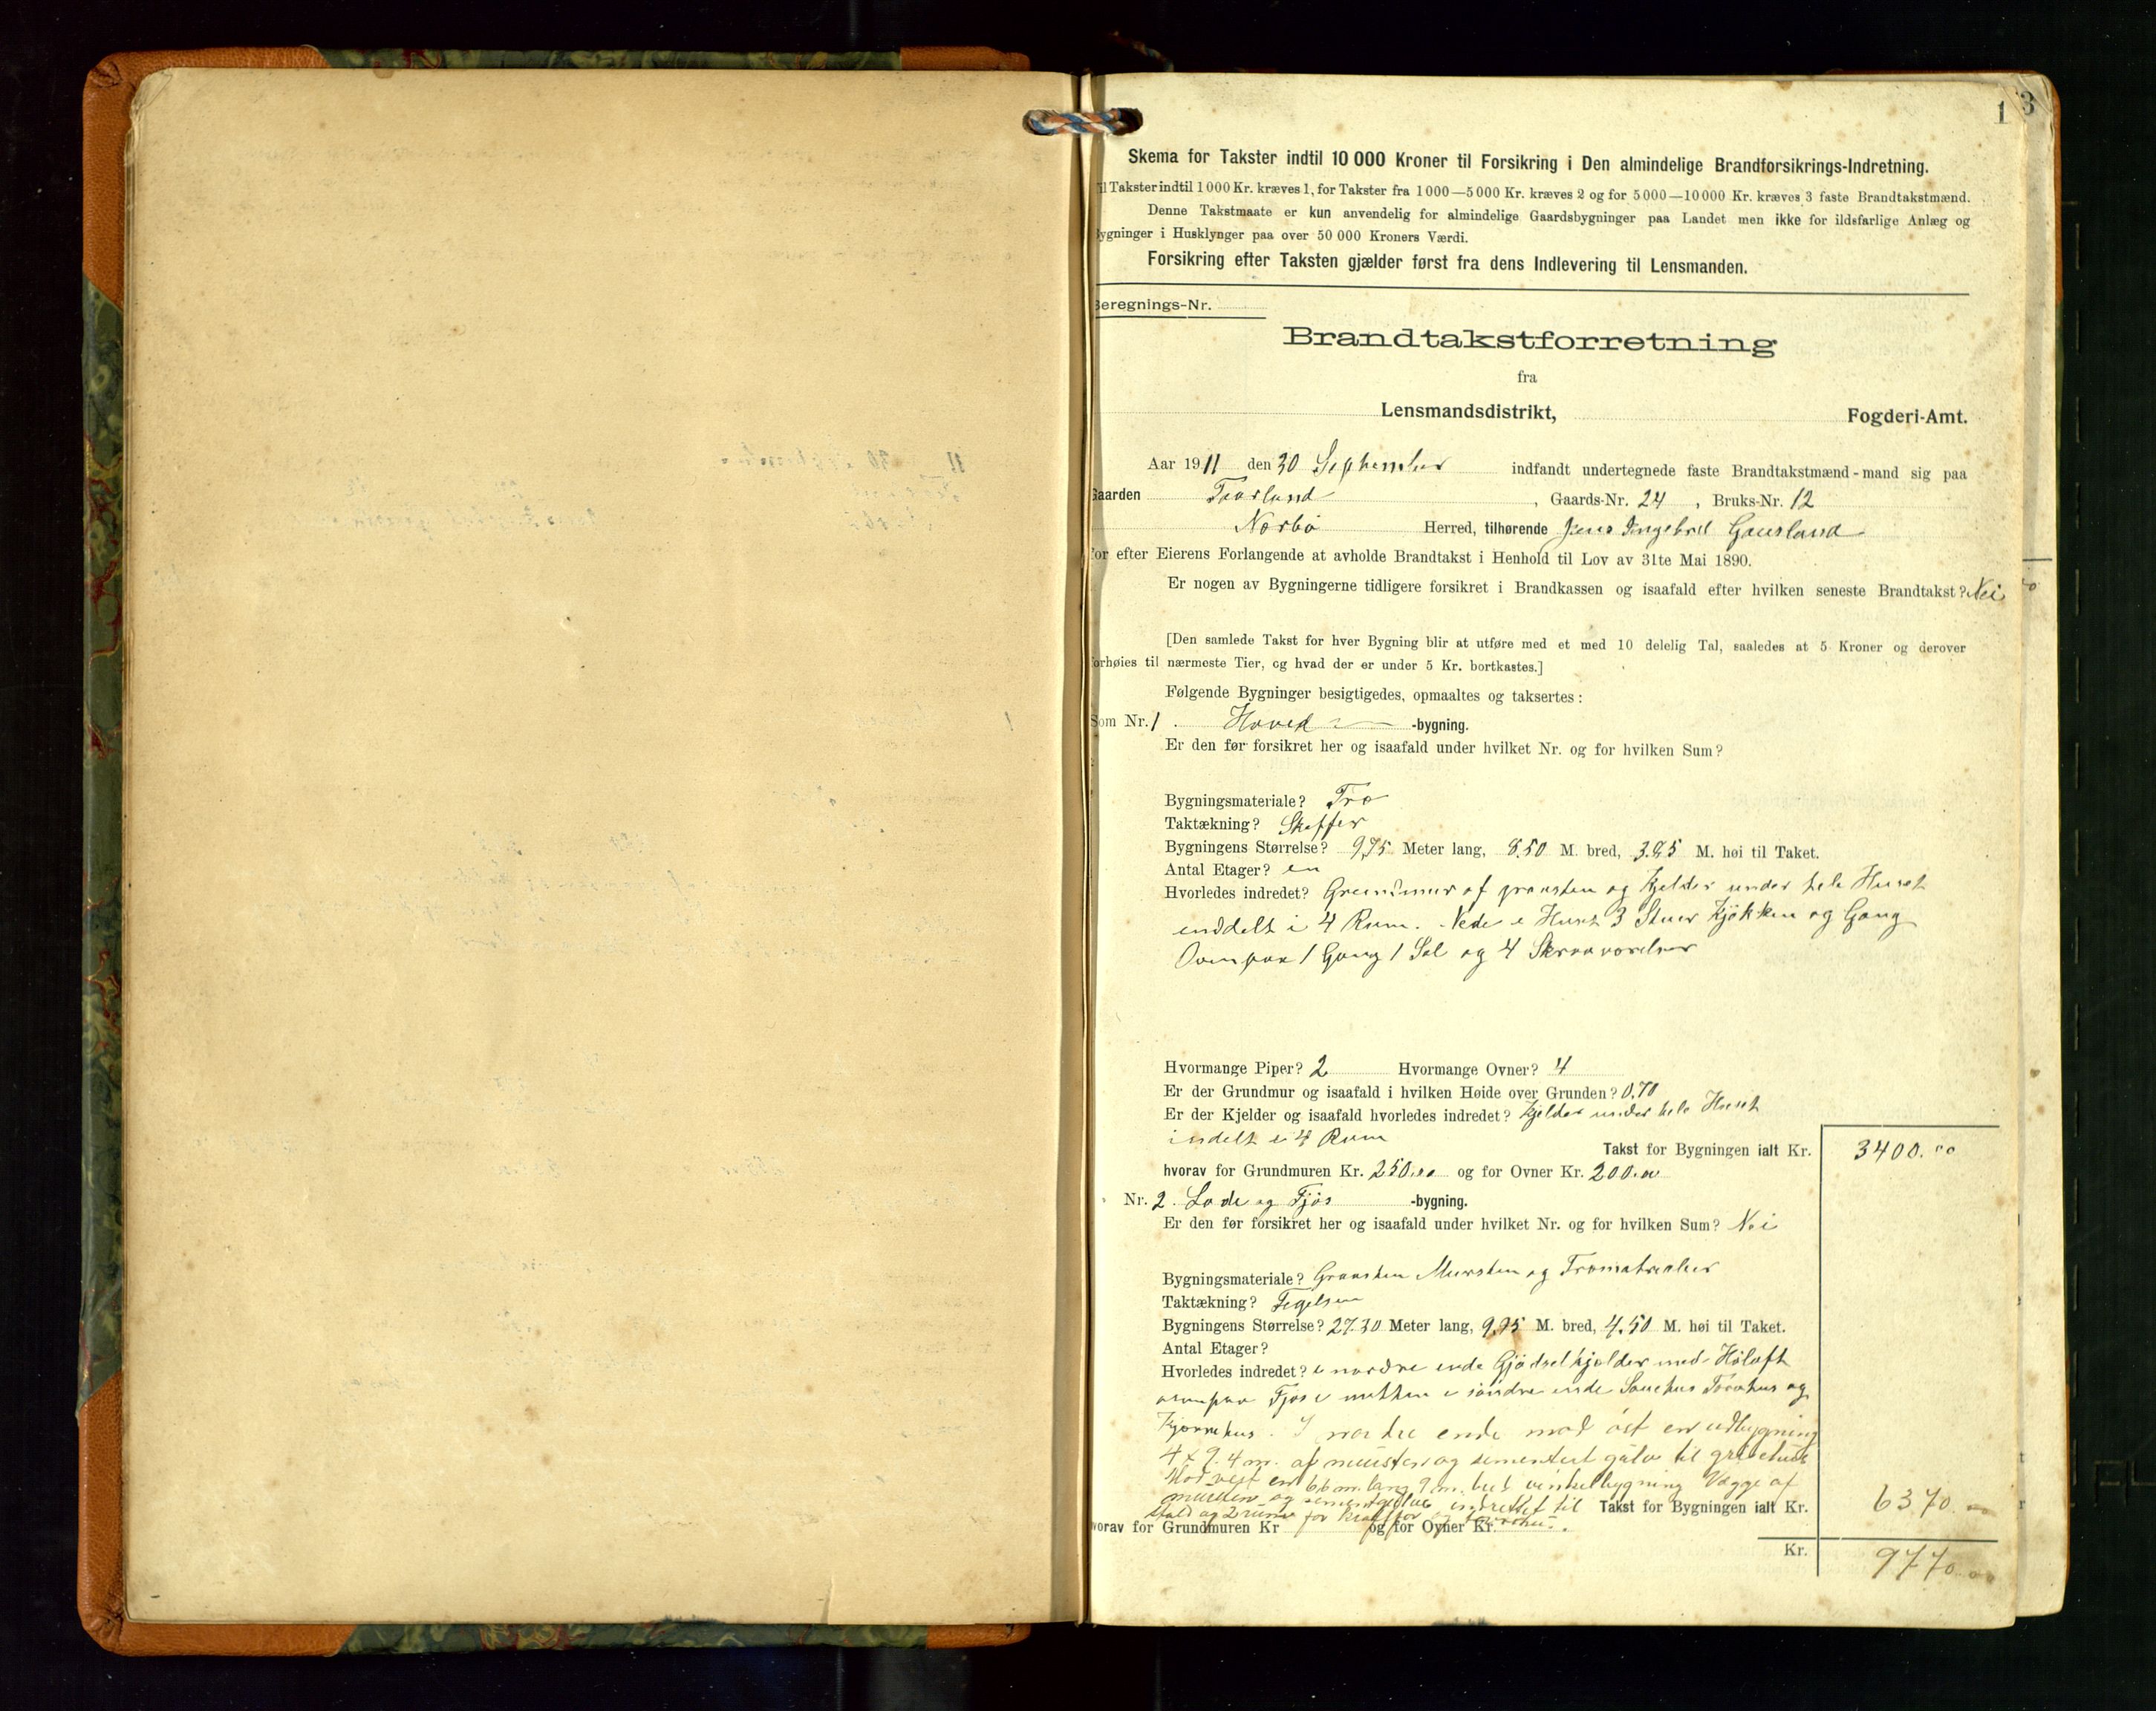 1
3
Skema for Takster indtil 10 000 Kroner til Forsikring i Den almindelige Brandforsikrings-Indretning.
il Takster indtil 1 000 Kr. kræves 1, for Takster fra 1 000—5 000 Kr. kræves 2 og for 5 000—10 000 Kr. kræves 3 faste Brandtakstmænd.
Denne Takstmaate er kun anvendelig for almindelige Gaardsbygninger paa Landet men ikke for ildsfarlige Anlæg og
ygninger i Husklynger paa over 50 000 Kroners Værdi.
Forsikring efter Taksten gjælder først fra dens Indlevering til Lensmanden.
Beregnings-Nr.
Brandtakstforretning
fra
Lensmandsdistrikt, Fogderi-Amt.
Aar 1911 den 30 September indfandt undertegnede faste Brandtakstmænd - mand sig paa
Gaarden Taarland, Gaards-Nr. 24, Bruks-Nr. 12
Nærbø Herred, tilhørende Jens Ingebret Gausland
for efter Eierens Forlangende at avholde Brandtakst i Henhold til Lov av 31te Mai 1890.
Er nogen av Bygningerne tidligere forsikret i Brandkassen og isaafald efter hvilken seneste Brandtakst? Nei
[Den samlede Takst for hver Bygning blir at utføre med et med 10 delelig Tal, saaledes at 5 Kroner og derover
forhøies til nærmeste Tier, og hvad der er under 5 Kr. bortkastes.]
Følgende Bygninger besigtigedes, opmaaltes og taksertes:
Som Nr. 1. Hoved -bygning.
Er den før forsikret her og isaafald under hvilket Nr. og for hvilken Sum?
Bygningsmateriale? Træ
Taktækning? Skiffer
Bygningens Størrelse? 9,75 Meter lang, 8.50 M. bred, 3.85 M. høi til Taket.
Antal Etager? en
Hvorledes indredet? Grundmur af graasten og Kjelder under hele Huset
inddelt i 4 Rum. Nede i Huset 3 Stuer Kjøkken og Gang
Ovenpaa 1 Gang 1 Sal og 4 Skraaværelser
Hvormange Piper? 2 Hvormange Ovner? 4
Er der Grundmur og isaafald i hvilken Høide over Grunden? 0,70
Er der Kjelder og isaafald hvorledes indredet? Kjelder under hele Huset
indelt i 4 Rum
Takst for Bygningen ialt Kr. 3400.00
hvorav for Grundmuren Kr. 250.00 og for Ovner Kr. 200.00
Nr. 2. Lade og Fjøs -bygning.
Er den før forsikret her og isaafald under hvilket Nr. og for hvilken Sum? Nei
Bygningsmateriale? Graasten Mursten og Træmaterialier
Taktækning? Teglsten
Bygningens Størrelse? 27.30 Meter lang, 9,75 M. bred, 4,50 M. høi til Taket.
Antal Etager?
Hvorledes indredet? i nordre ende Gjødselkjelder med Høloft
ovenpaa Fjøs i midten i søndre ende Sauehus Torvhus og
Kjørrehus. I nordre ende mod øst en udbygning
4 x 9.4 m. af mursten og sementert gulv til grisehus
Mod vest en 6.6 m. lang 9 m. bred vinkelbygning Vægge af
mursten og sementgulv indrettet til
Stald og 2 rum for
Takst for Bygningen ialt Kr. 6370.00
hvorav for Grundmuren Kr og for Ovner Kr.
Kr. 9770.00